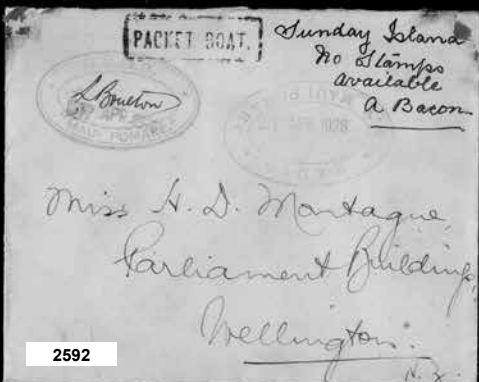 PACKET BOAT.
Sunday Island
No Stamps
available
A Bacon
APR
MAUI POMARE
APR 1928
MAUI PO
Miss H. D. Montague,
Parliament Buildings,
Wellington.
N. Z.
2592